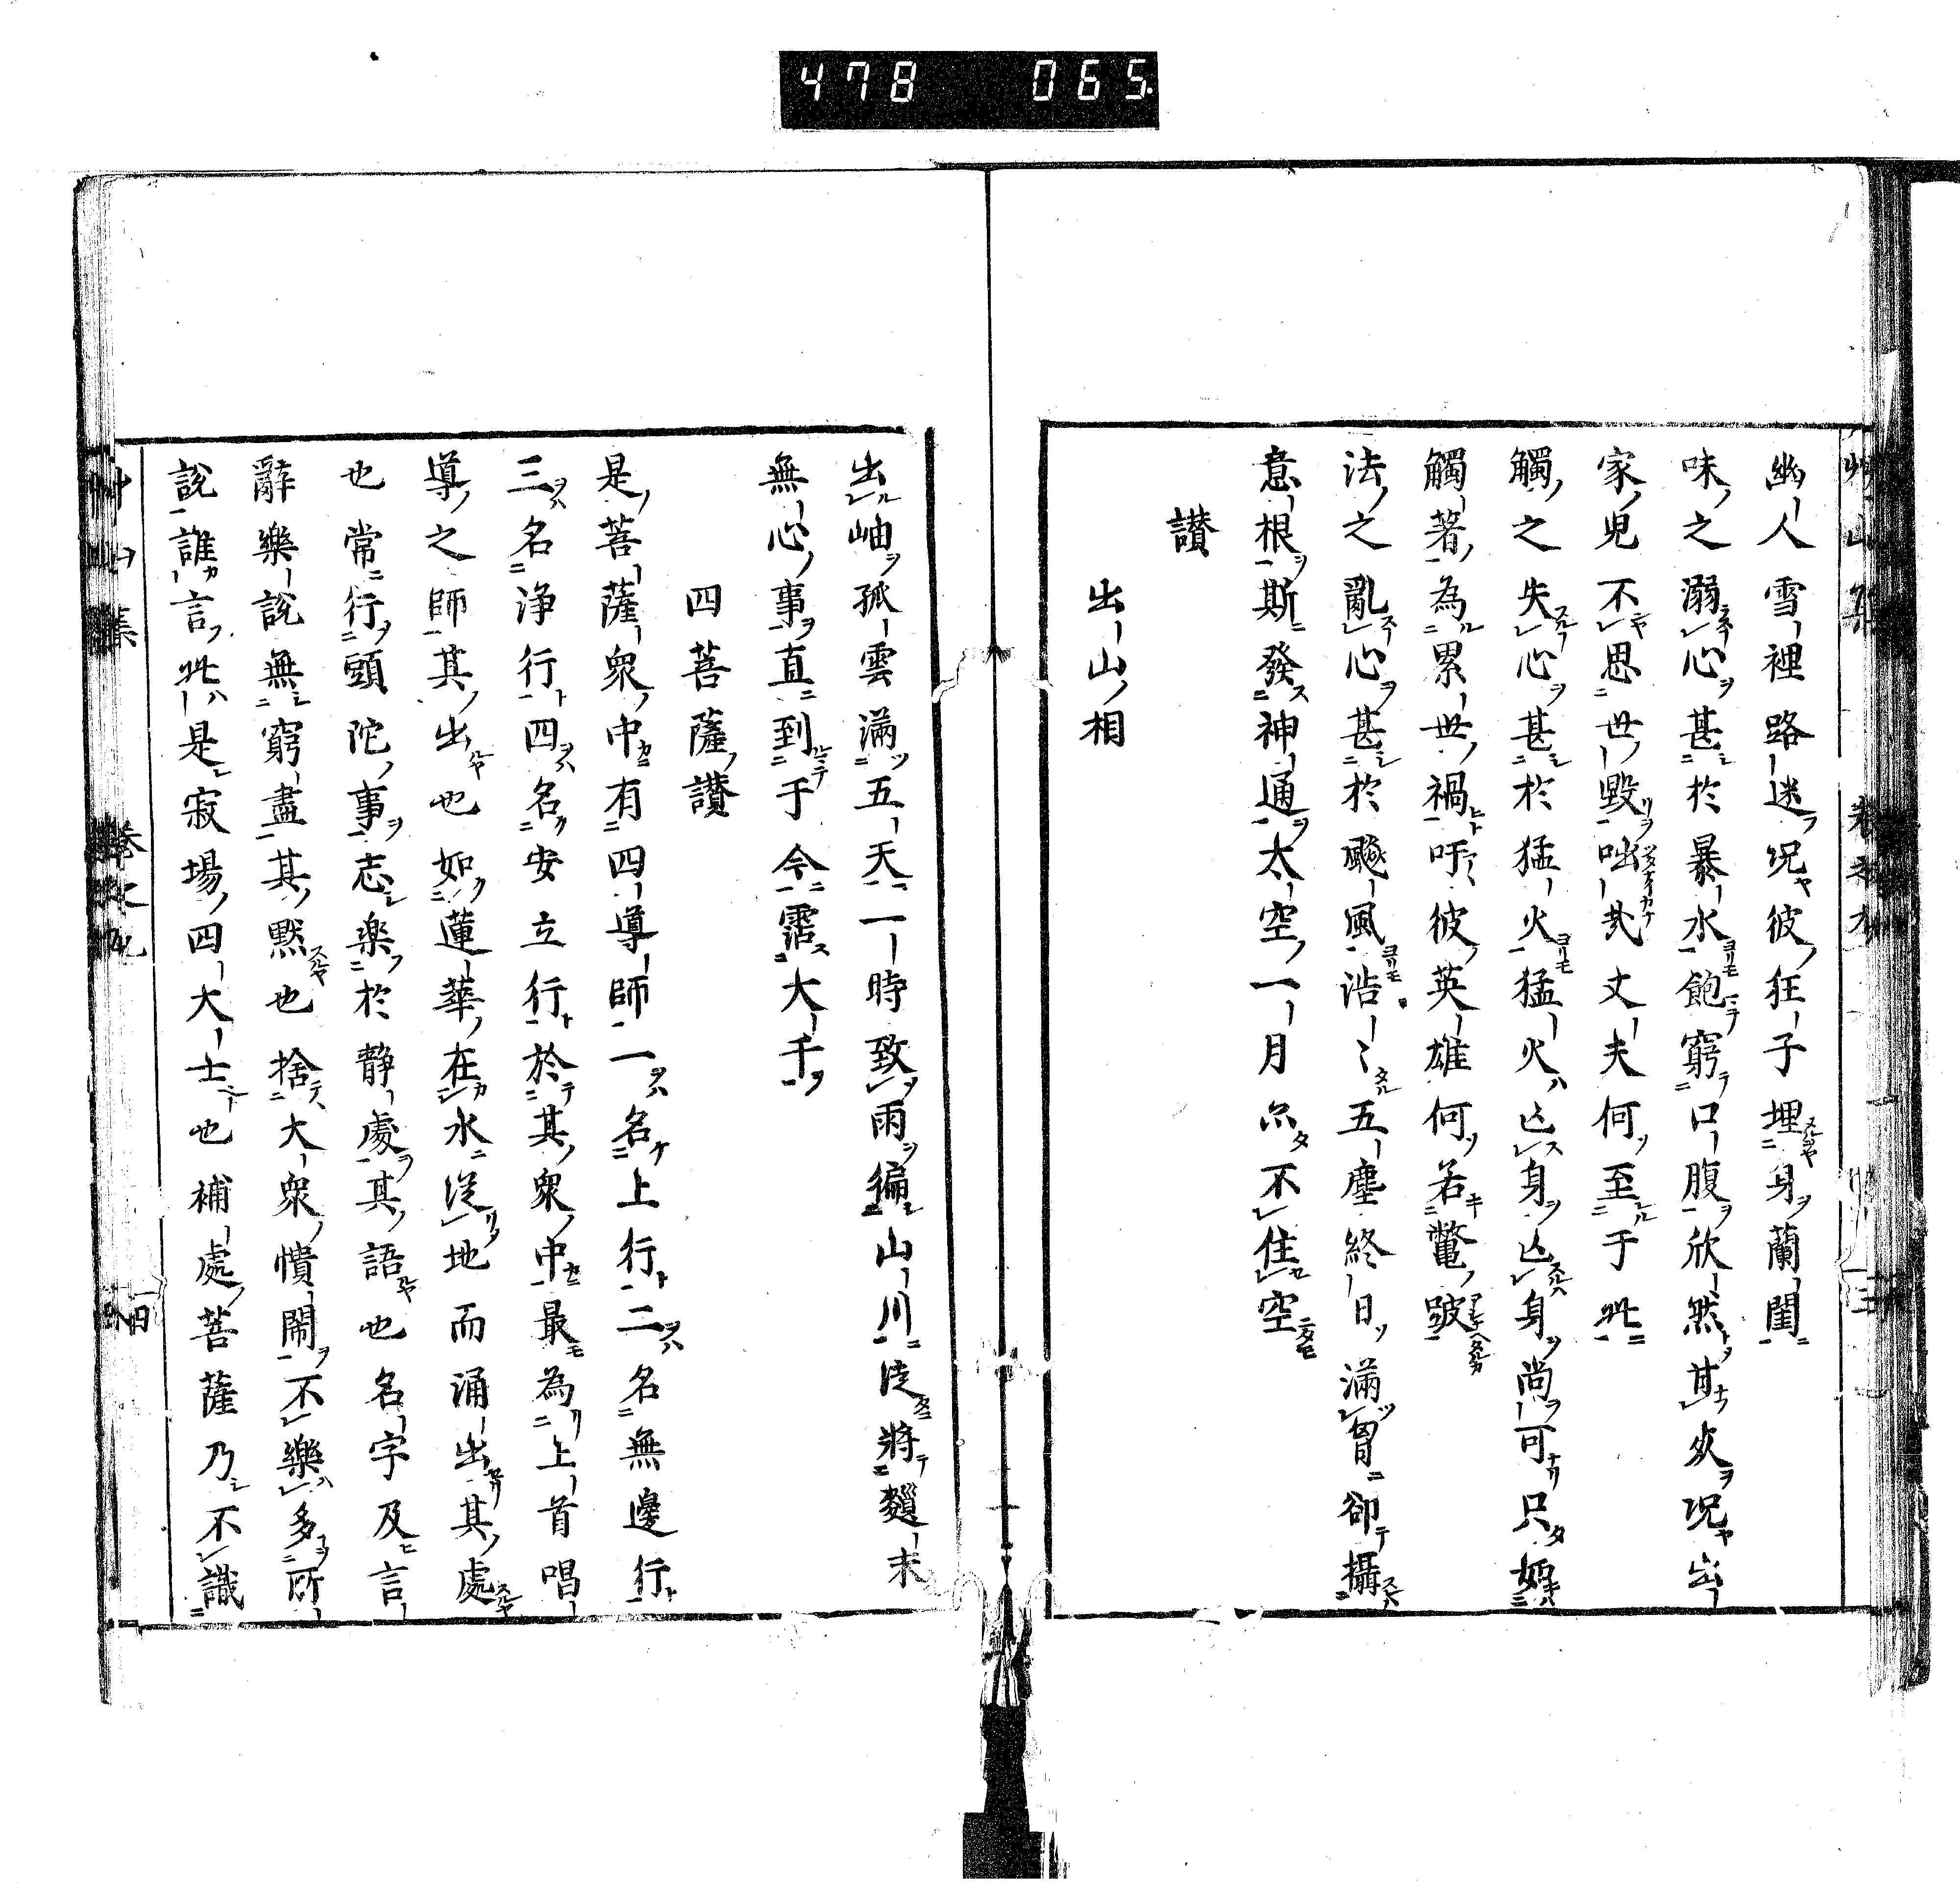 478 065
幽人雪裡路迷況彼狂子埋身蘭閨
味之溺心甚於暴水飽窮口腹欣然甘災況出
家児不思世毀咄哉丈夫何至于此
觸之失心甚於猛火猛火亡身亡身尚可只如
觸著為累世禍吁彼英雄何若鼈跛
法之亂心甚於飈風浩〻五塵終日滿胷卻攝
意根斯發神通太空一月尓不住空
讃
出山相
出岫孤雲滿五天一時致雨徧山川從將麵末
無心事直到于今霑大千
四菩薩讃
是菩薩衆中有四導師一名上行二名無邊行
三名淨行四名安立行於其衆中最為上首唱
導之師其出也如蓮華在水從地而涌出其處
也常行頭陀事志楽於靜處其語也名字及言
辭樂說無窮盡其黙也捨大衆憒鬧不樂多所
說誰言此是寂場四大士也補處菩薩乃不識